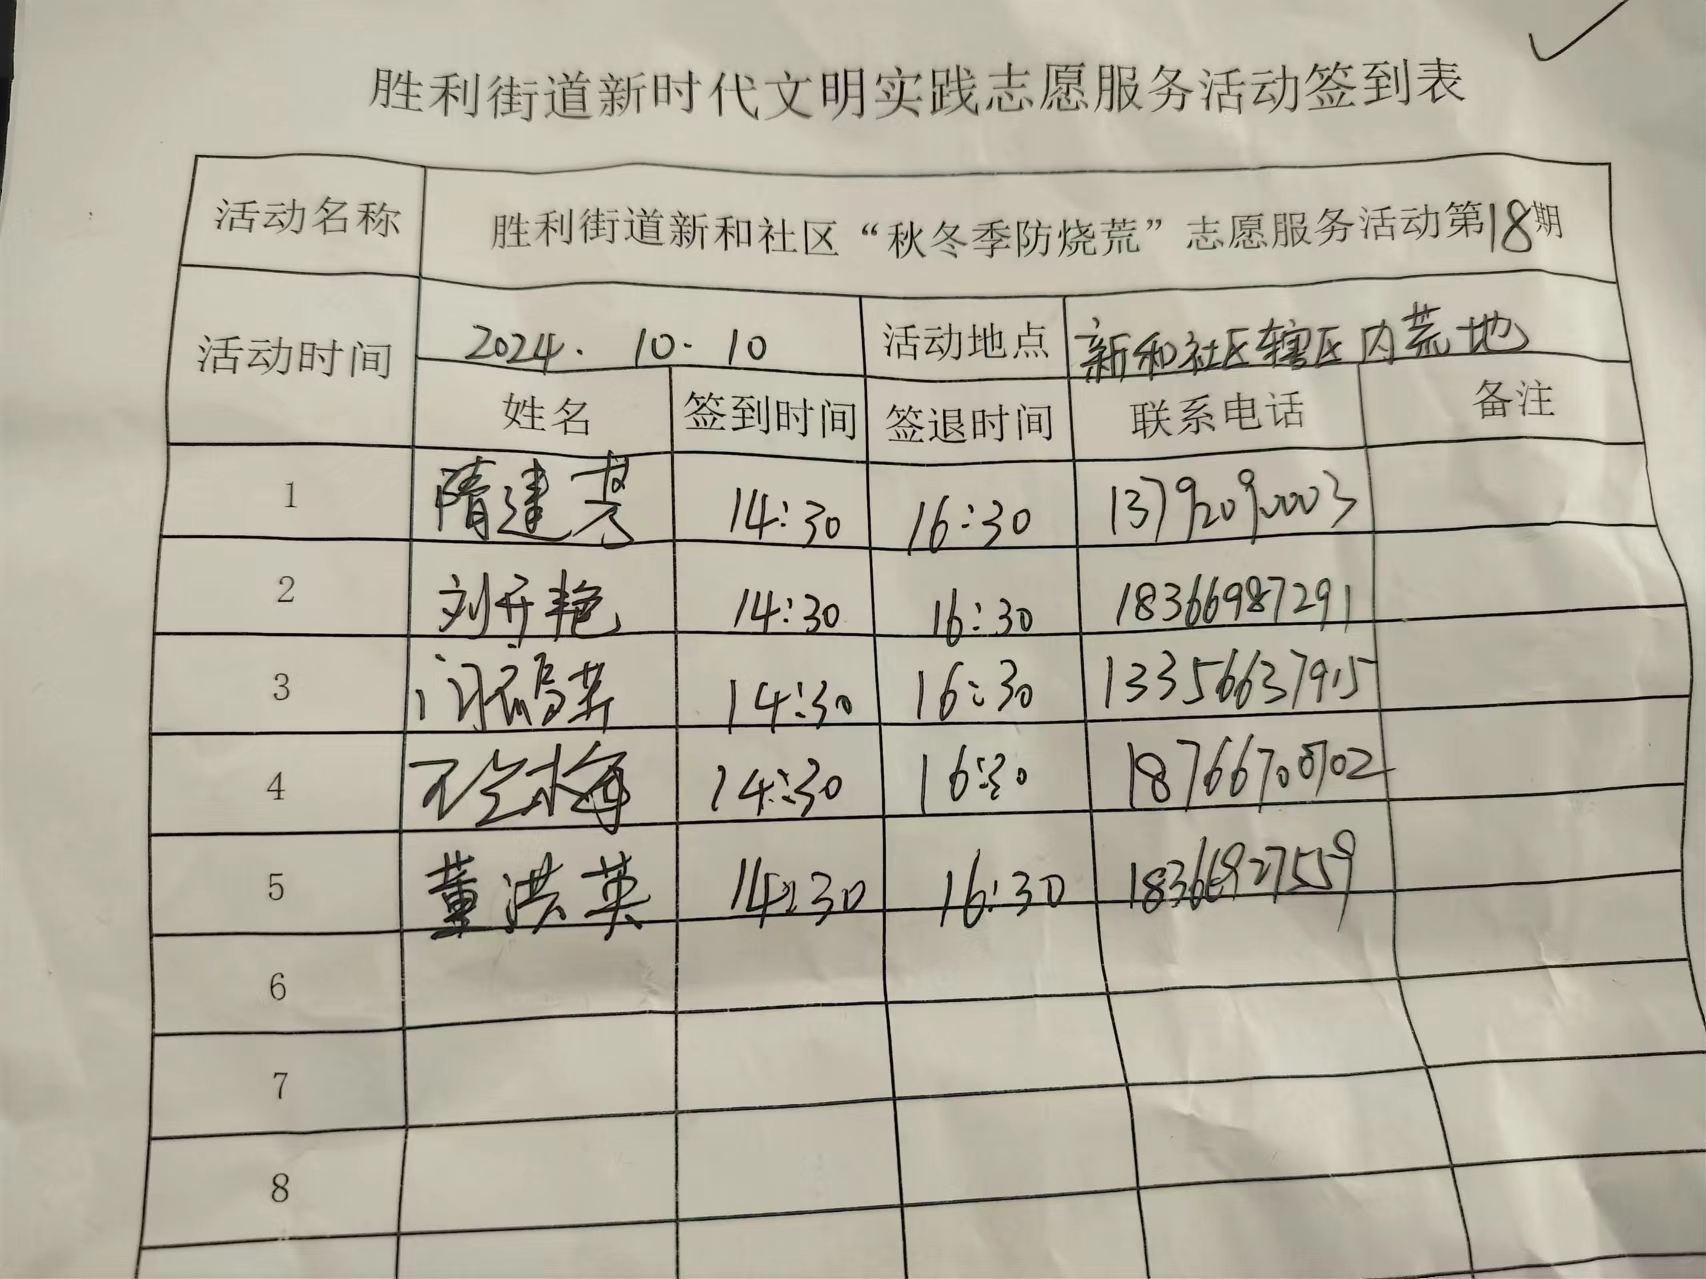 胜利街道新时代文明实践志愿服务活动签到表
活动名称 胜利街道新和社区“秋冬季防烧荒”志愿服务活动第18期
活动时间 2024. 10. 10 活动地点 新和社区辖区内荒地
姓名 签到时间 签退时间 联系电话 备注
1 隋建 14:30 16:30 13792090003
2 刘开艳 14:30 16:30 18366987291
3 14:30 16:30 13356637915
4 14:30 16:30
5 董洪英 14:30 16:30 18366927559
6
7
8